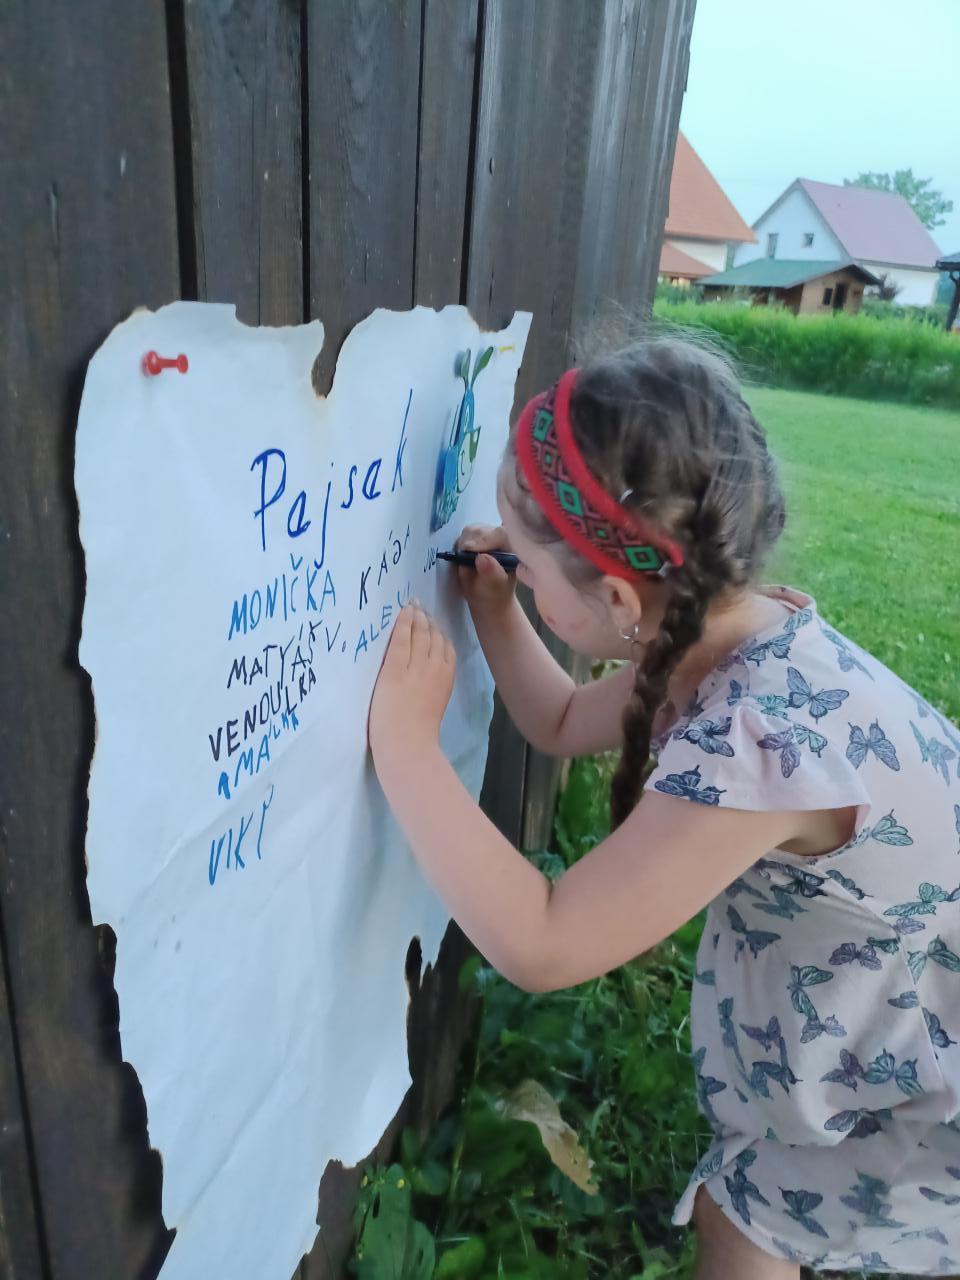 Pajsak
MONIČKA KÁĎA
MATYÁŠ V. ALEX
VENDULKA
MAJLKA
VIKI